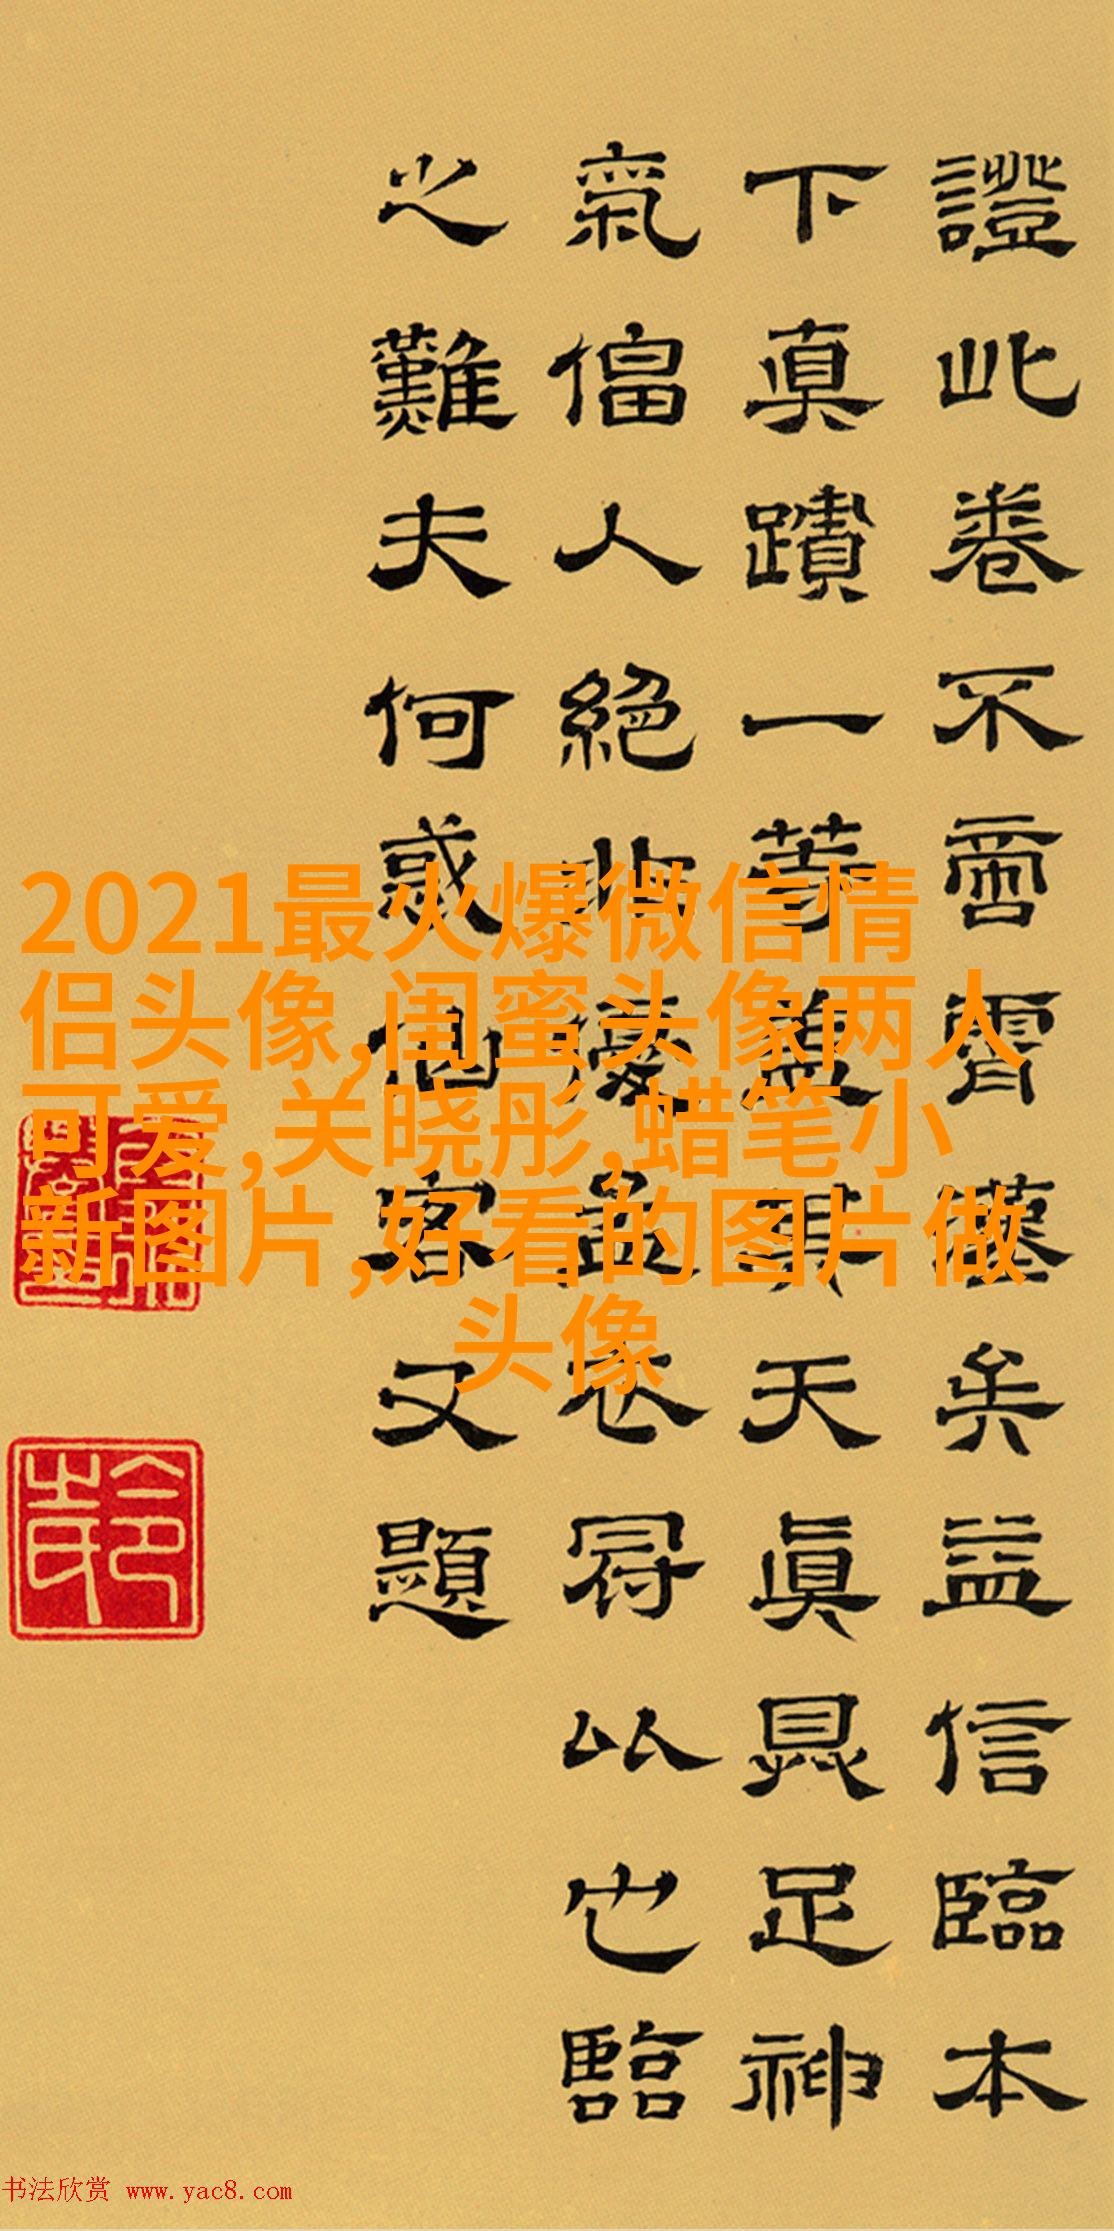 證此卷不啻霄壤矣益信臨本
下真蹟一等蓋其天真具足神
氣偪人絕非優孟衣冠以也臨
之難夫何惑客又題
2021最火爆微信情
侣头像,闺蜜头像两人
可爱,关晓彤,蜡笔小
新图片,好看的图片做
头像
书法欣赏 www.yac8.com